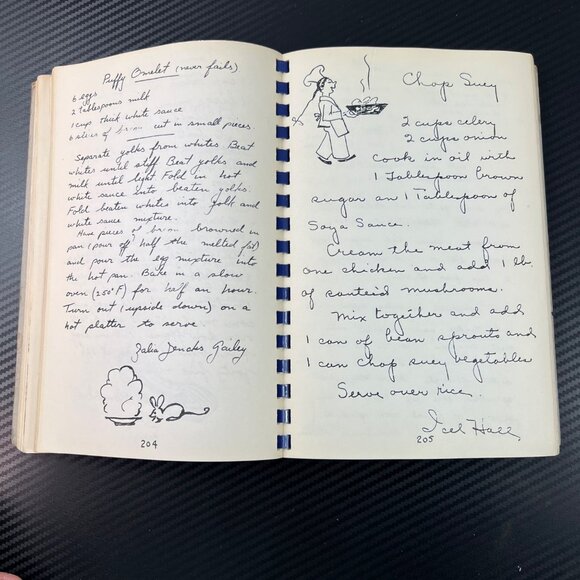 Puffy Omelet (never fails)
6 eggs
2 Tablespoons milk
1 cup thick white sauce
6 slices of bacon cut in small pieces.
Separate yolks from whites Beat
whites until stiff Beat yolks and
milk until light Fold in hot
white sauce into beaten yolks.
Fold beaten whites into yolk and
white sauce mixture.
Have pieces of bacon browned in
pan (pour off half the melted fat)
and pour the egg mixture into
the hot pan. Bake in a slow
oven (250°F) for half an hour.
Turn out (upside down) on a
hot platter to serve.
Zalia Jencks Gailey
204
Chop Suey
2 cups celery
2 cups onion
cook in oil with
1 Tablespoon brown
sugar an 1 Tablespoon of
Soya Sauce.
Cream the meat from
one chicken and add 1 lb.
of sauteid mushrooms.
Mix togeither and add
1 can of bean sprouts and
1 can Chop suey vegetables
Serve over rice.
Icel Hall
205